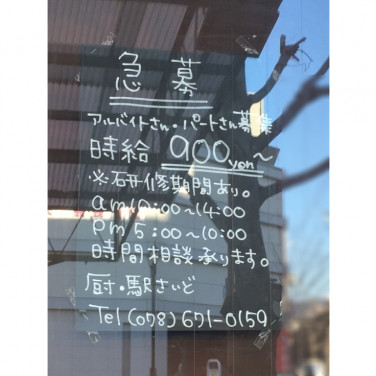 急募
アルバイトさん・パートさん募集
時給 900yen〜
※研修期間あり。
am10:00〜14:00
pm5:00〜10:00
時間相談承ります。
厨・駅さいど
Tel (078) 671-0159